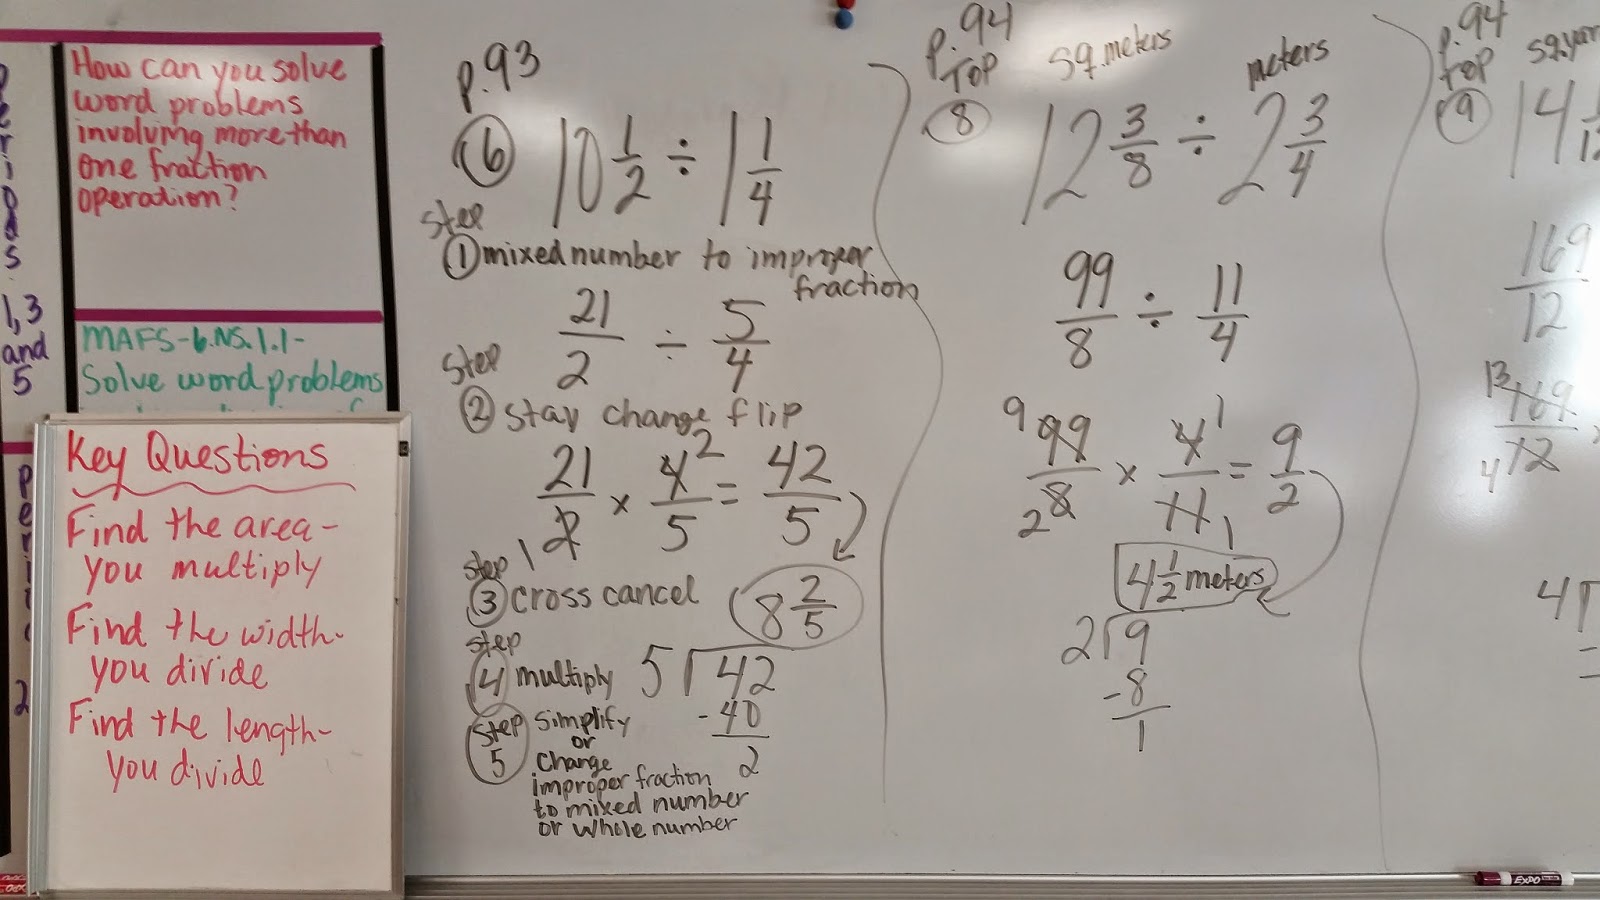 Periods
1,3
and
5
How can you solve
word problems
involving more than
one fraction
operation?
MAFS-6.NS.1.1-
Solve word problems
2
Key Questions
Find the area-
you multiply
Find the width-
you divide
Find the length-
you divide
p.93
6 10 1/2 ÷ 1 1/4
Step
1 mixed number to improper
fraction
21/2 ÷ 5/4
Step
2 stay change flip
21/2 × 4/5 = 42/5
2
1
Step
3 cross cancel
8 2/5
Step
4 multiply
5 42
-40
2
Step
5
simplify
or
change
improper fraction
to mixed number
or whole number
p.94
TOP
8
sq.meters
meters
12 3/8 ÷ 2 3/4
99/8 ÷ 11/4
9 1
99/8 × 4/11 = 9/2
2 1
4 1/2 meters
2 9
-8
1
p.94
TOP
9
14
169
12
13
169
12
4
4
-
EXPO